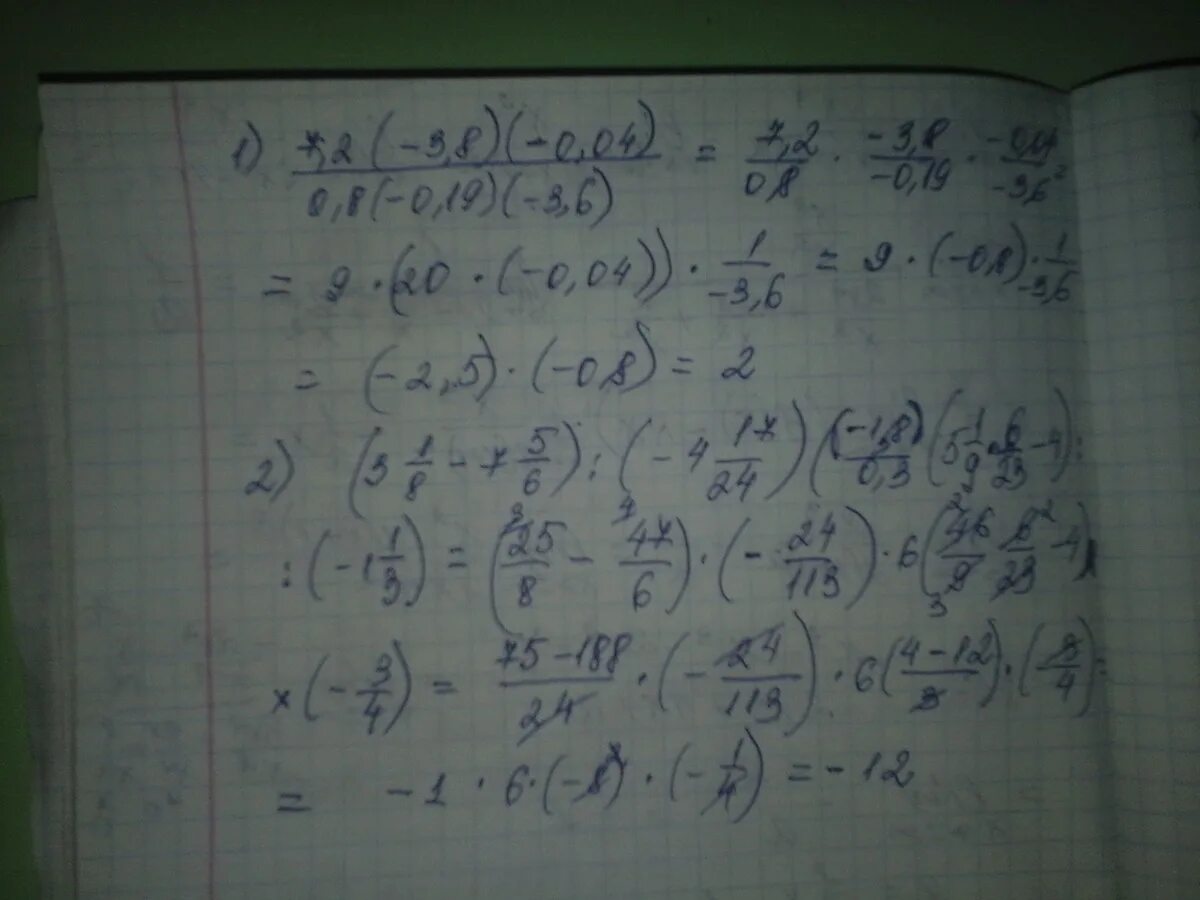 1) 7,2(-3,8)(-0,04) / 0,8(-0,19)(-3,6) = 7,2/0,8 · -3,8/-0,19 · -0,04/-3,6
= 9 · (20 · (-0,04)) · 1/-3,6 = 9 · (-0,8) · 1/-3,6
= (-2,5) · (-0,8) = 2
2) (3 1/8 - 7 5/6) : (-4 17/24) (-1,8)/0,3 (5 1/9 · 6/23 - 4) :
: (-1 1/3) = (25/8 - 47/6) · (- 24/113) · 6 (46/9 · 6/23 - 4)
× (- 3/4) = 75-188/24 · (- 24/113) · 6 (4-12/3) · (- 3/4) =
= -1 · 6 · (-8) · (- 1/4) = -12